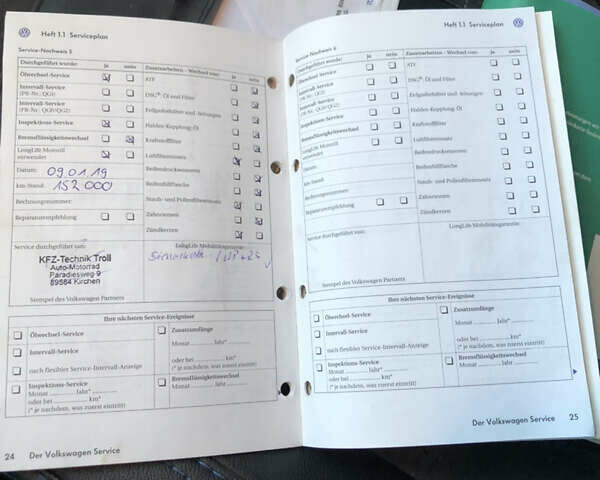 Heft 1.1 Serviceplan
Service-Nachweis 5
Durchgeführt wurde: ja nein
Ölwechsel-Service
Intervall-Service
(PR-Nr.: QG1)
Intervall-Service
(PR-Nr.: QG0/QG2)
Inspektions-Service
Bremsflüssigkeitswechsel
LongLife Motoröl
verwendet
Datum: 09.01.19
km-Stand: 152 000
Rechnungsnummer:
Reparaturempfehlung
Zusatzarbeiten - Wechsel von: ja nein
ATF
DSG®-Öl und Filter
Haldex-Kupplung-Öl
Kraftstofffilter
Luftfiltereinsatz
Reifendruckssensoren
Reifenfüllflasche
Staub- und Pollenfiltereinsatz
Zahnriemen
Zündkerzen
Service durchgeführt von:
KFZ-Technik Troll
Auto-Motorrad
Paradiesweg 9
89584 Kirchen
Stempel des Volkswagen Partners
LongLife Mobilitätsgarantie
Ihre nächsten Service-Ereignisse
Ölwechsel-Service
Intervall-Service
nach flexibler Service-Intervall-Anzeige
Inspektions-Service
Monat .......... Jahr* ..........
oder bei .......... km*
(* je nachdem, was zuerst eintritt)
Zusatzumfänge
Monat .......... Jahr* ..........
oder bei .......... km*
(* je nachdem, was zuerst eintritt)
Bremsflüssigkeitswechsel
Monat .......... Jahr ..........
24 Der Volkswagen Service
Heft 1.1 Serviceplan
Service-Nachweis 6
Durchgeführt wurde: ja nein
Ölwechsel-Service
Intervall-Service
(PR-Nr.: QG1)
Intervall-Service
(PR-Nr.: QG0/QG2)
Inspektions-Service
Bremsflüssigkeitswechsel
LongLife Motoröl
verwendet
Datum:
km-Stand:
Rechnungsnummer:
Reparaturempfehlung
Zusatzarbeiten - Wechsel von: ja nein
ATF
DSG®-Öl und Filter
Haldex-Kupplung-Öl
Kraftstofffilter
Luftfiltereinsatz
Reifendruckssensoren
Reifenfüllflasche
Staub- und Pollenfiltereinsatz
Zahnriemen
Zündkerzen
Service durchgeführt von:
Stempel des Volkswagen Partners
LongLife Mobilitätsgarantie
Ihre nächsten Service-Ereignisse
Ölwechsel-Service
Intervall-Service
nach flexibler Service-Intervall-Anzeige
Inspektions-Service
Monat .......... Jahr* ..........
oder bei .......... km*
(* je nachdem, was zuerst eintritt)
Zusatzumfänge
Monat .......... Jahr* ..........
oder bei .......... km*
(* je nachdem, was zuerst eintritt)
Bremsflüssigkeitswechsel
Monat .......... Jahr ..........
Der Volkswagen Service 25